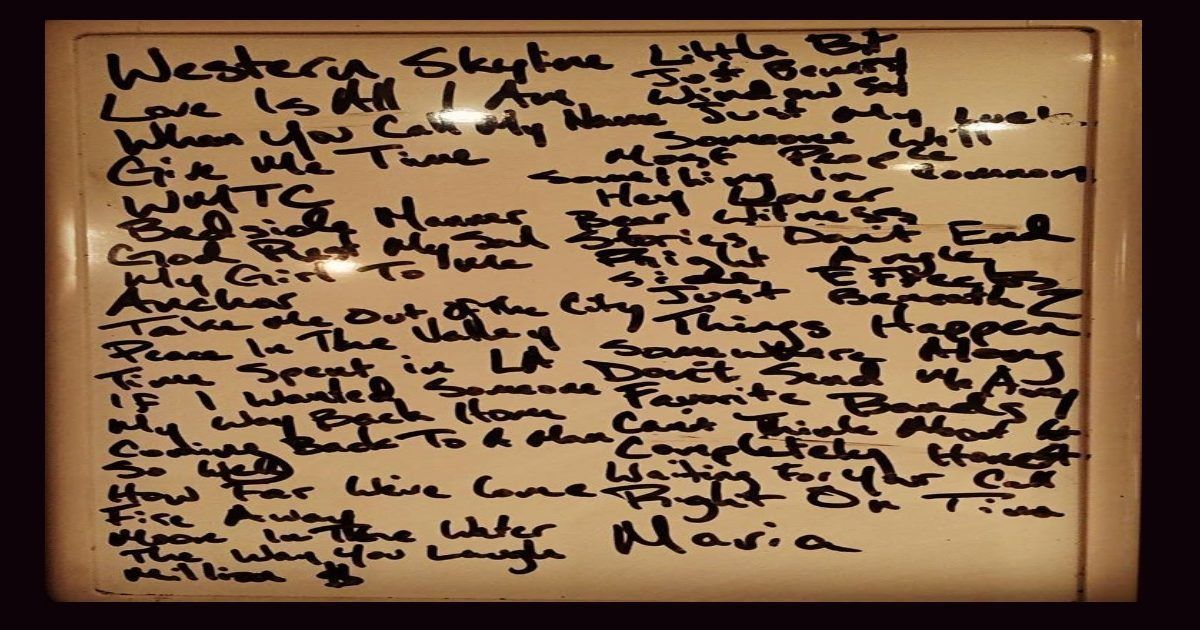 Western Skyline
Love Is All I Am
When You Call My Name
Give Me Time
WMTC
Bedside Manner
God Rest My Soul
My Girl To Me
Anchor
Take Me Out Of The City
Peace In The Valley
Time Spent in LA
If I Wanted Someone
My Way Back Home
Coming Back To A Man
So Well
How Far We've Come
Fire Away
Moon In The Water
The Way You Laugh
Million $
Little Bit
Just Beneath
Window Sea
Just My Luck
Someone Will
Most People
Something In Common
Hey Lover
Bear Witness
Stories Don't End
Right Angle
Side Effects
Just Beneath 2
Things Happen
Somewhere Along
Don't Send Me Away
Favorite Bands
Can't Think About It
Completely Honest
Waiting For Your Call
Right On Time
Maria